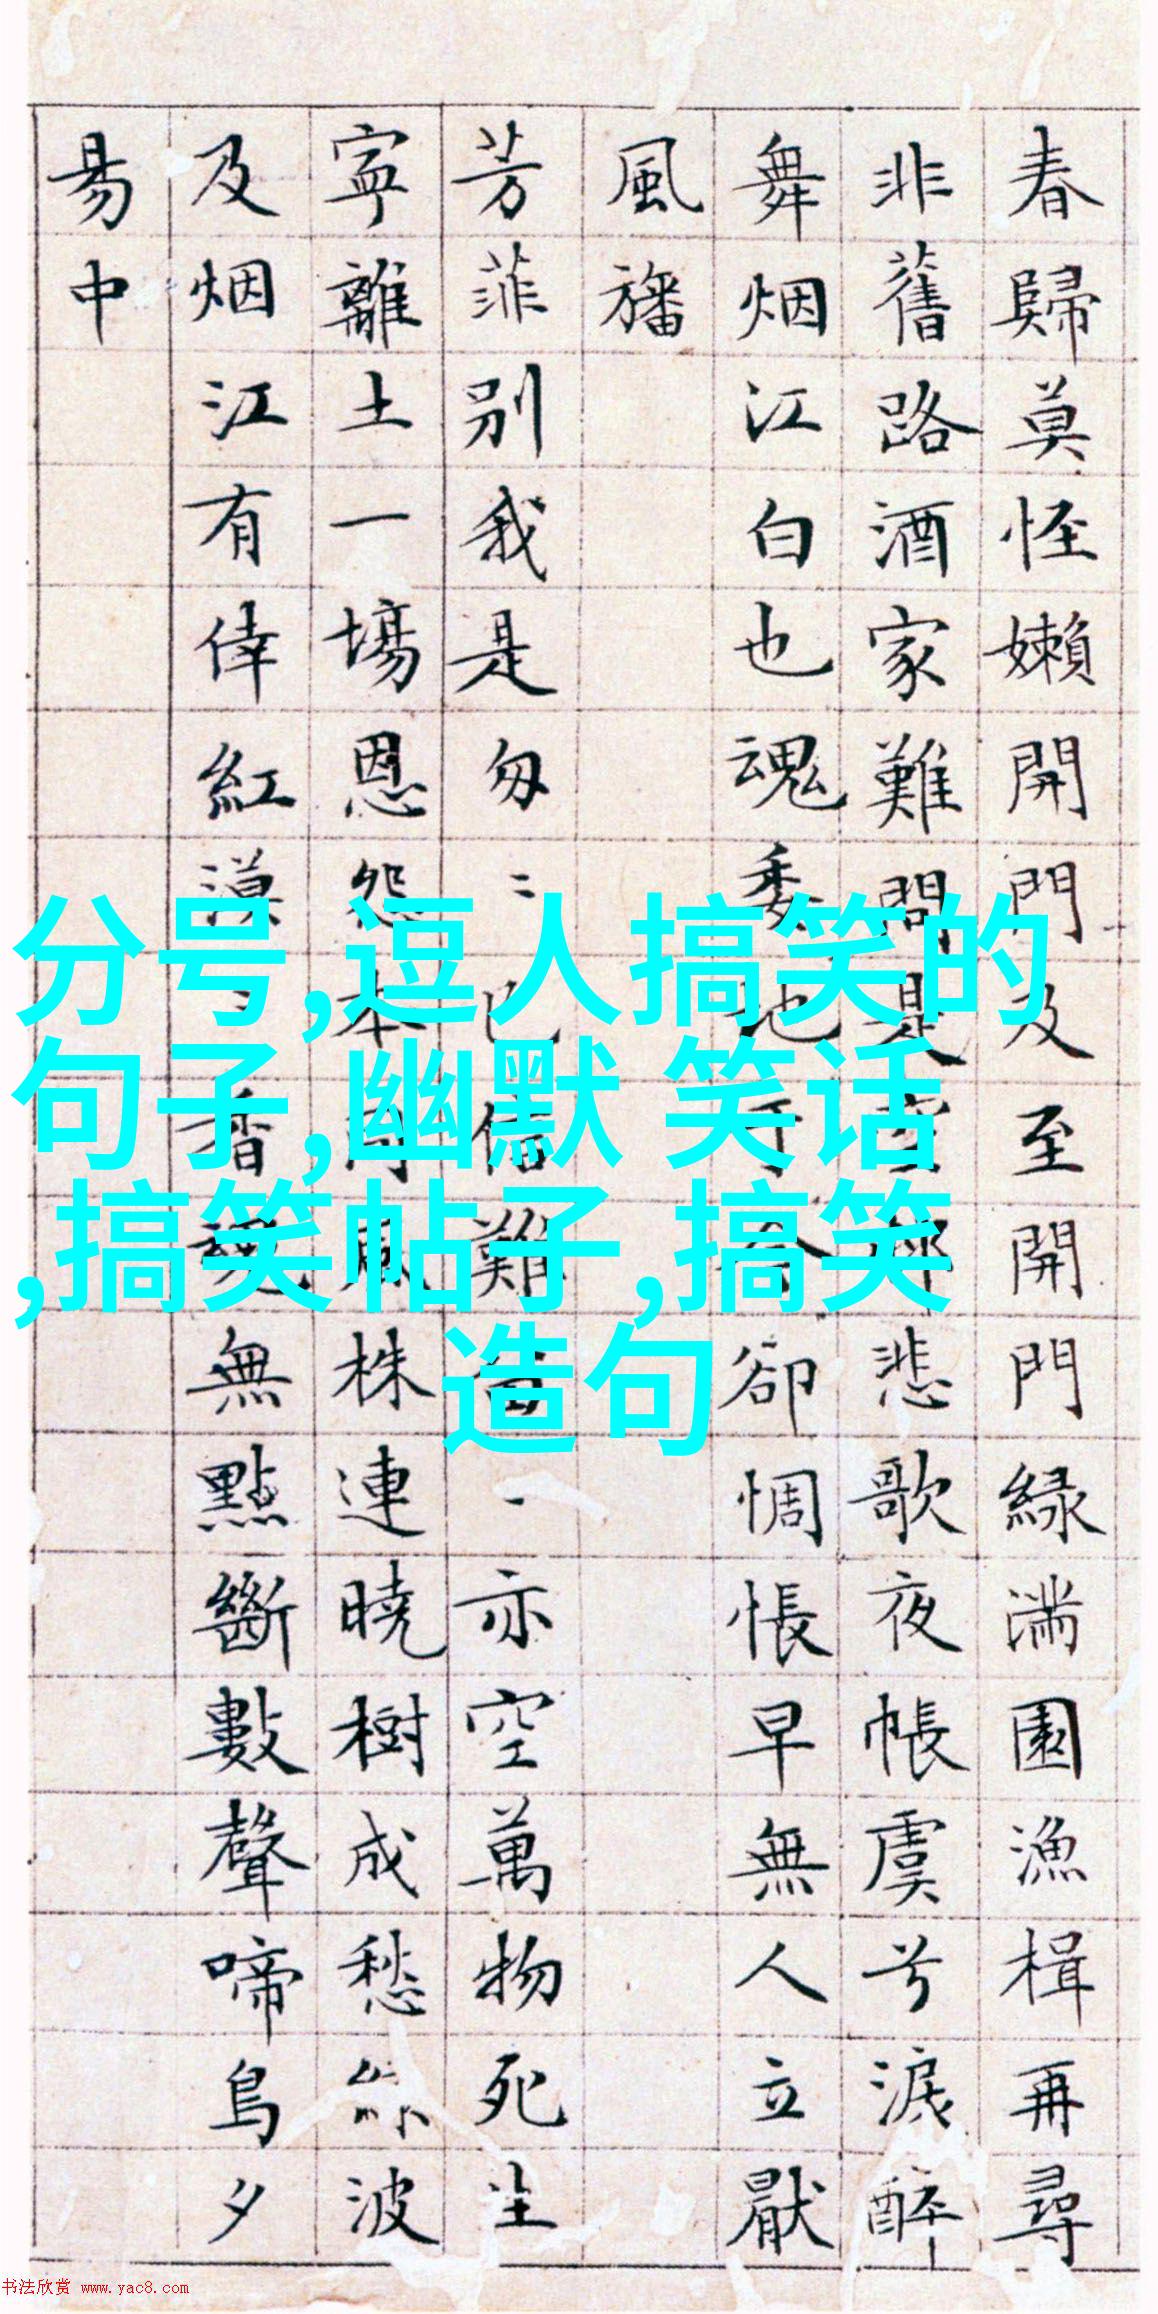 春歸莫怪嬾開門及至開門緑滿園漁楫再尋
非舊路酒家難問是空邨悲歌夜帳虞兮淚醉
舞烟江白也魂委地于今卻惆悵早無人立厭
風旛
芳菲別我是匆〻已信難留一亦空萬物死生
寧離土一場恩怨本同風株連曉樹成愁波
及烟江有倖紅漠〻香魂無點斷數聲啼鳥夕
易中
分号,逗人搞笑的
句子,幽默 笑话
,搞笑帖子,搞笑
造句
书法欣赏 www.yac8.com